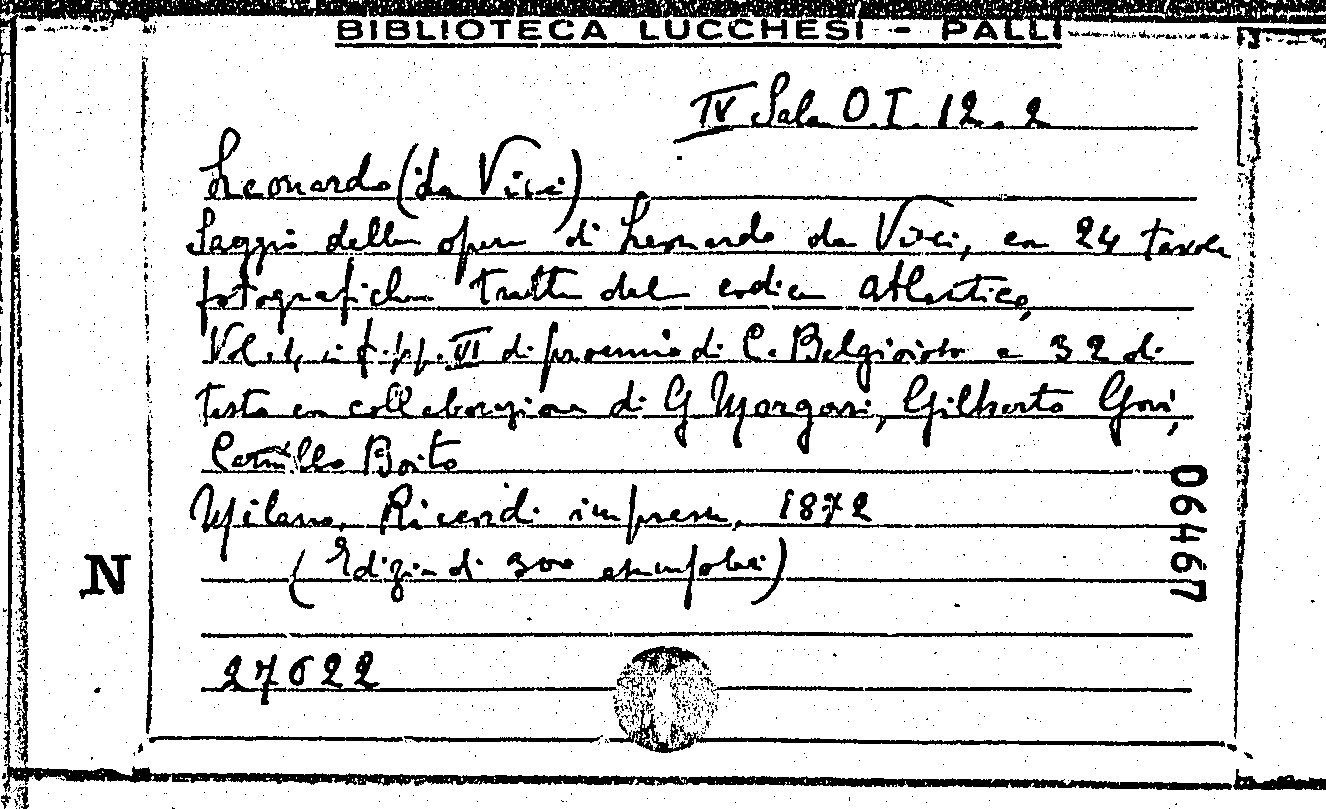 BIBLIOTECA LUCCHESI - PALLI
IV Sala O.I. 12.2
Leonardo (da Vinci)
Saggio delle opere di Leonardo da Vinci, con 24 tavole
fotografiche tratte dal codice atlantico,
Vol. 1, in f. pp. VI di proemio di C. Belgioioso e 32 di
testo con collaborazione di G Mongeri, Gilberto Govi,
Camillo Boito
Milano. Ricordi impresse, 1872
(Edizin di 300 esemplari)
06467
N
27622